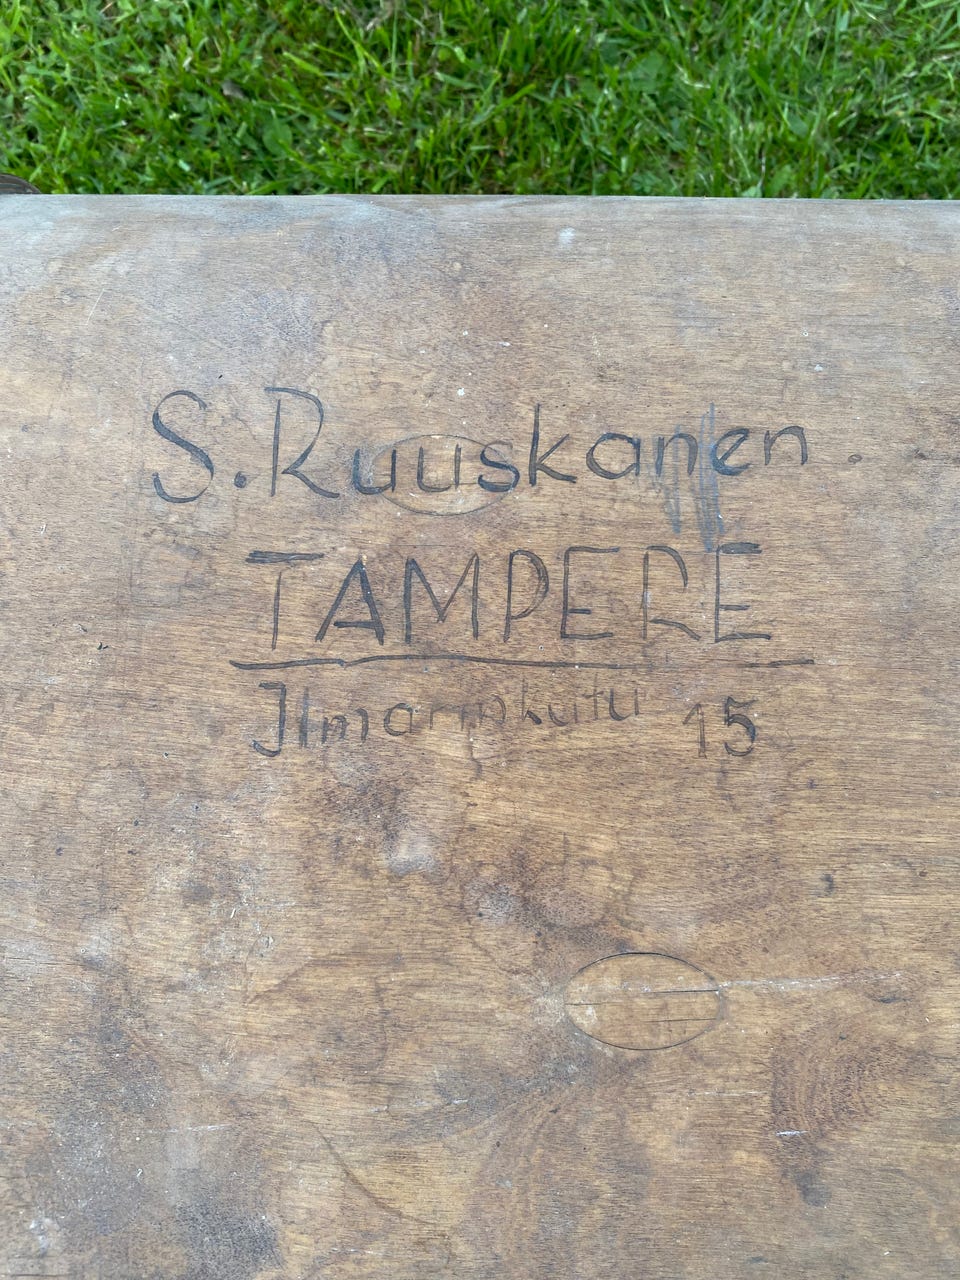 S. Ruuskanen
TAMPERE
Ilmarinkatu 15